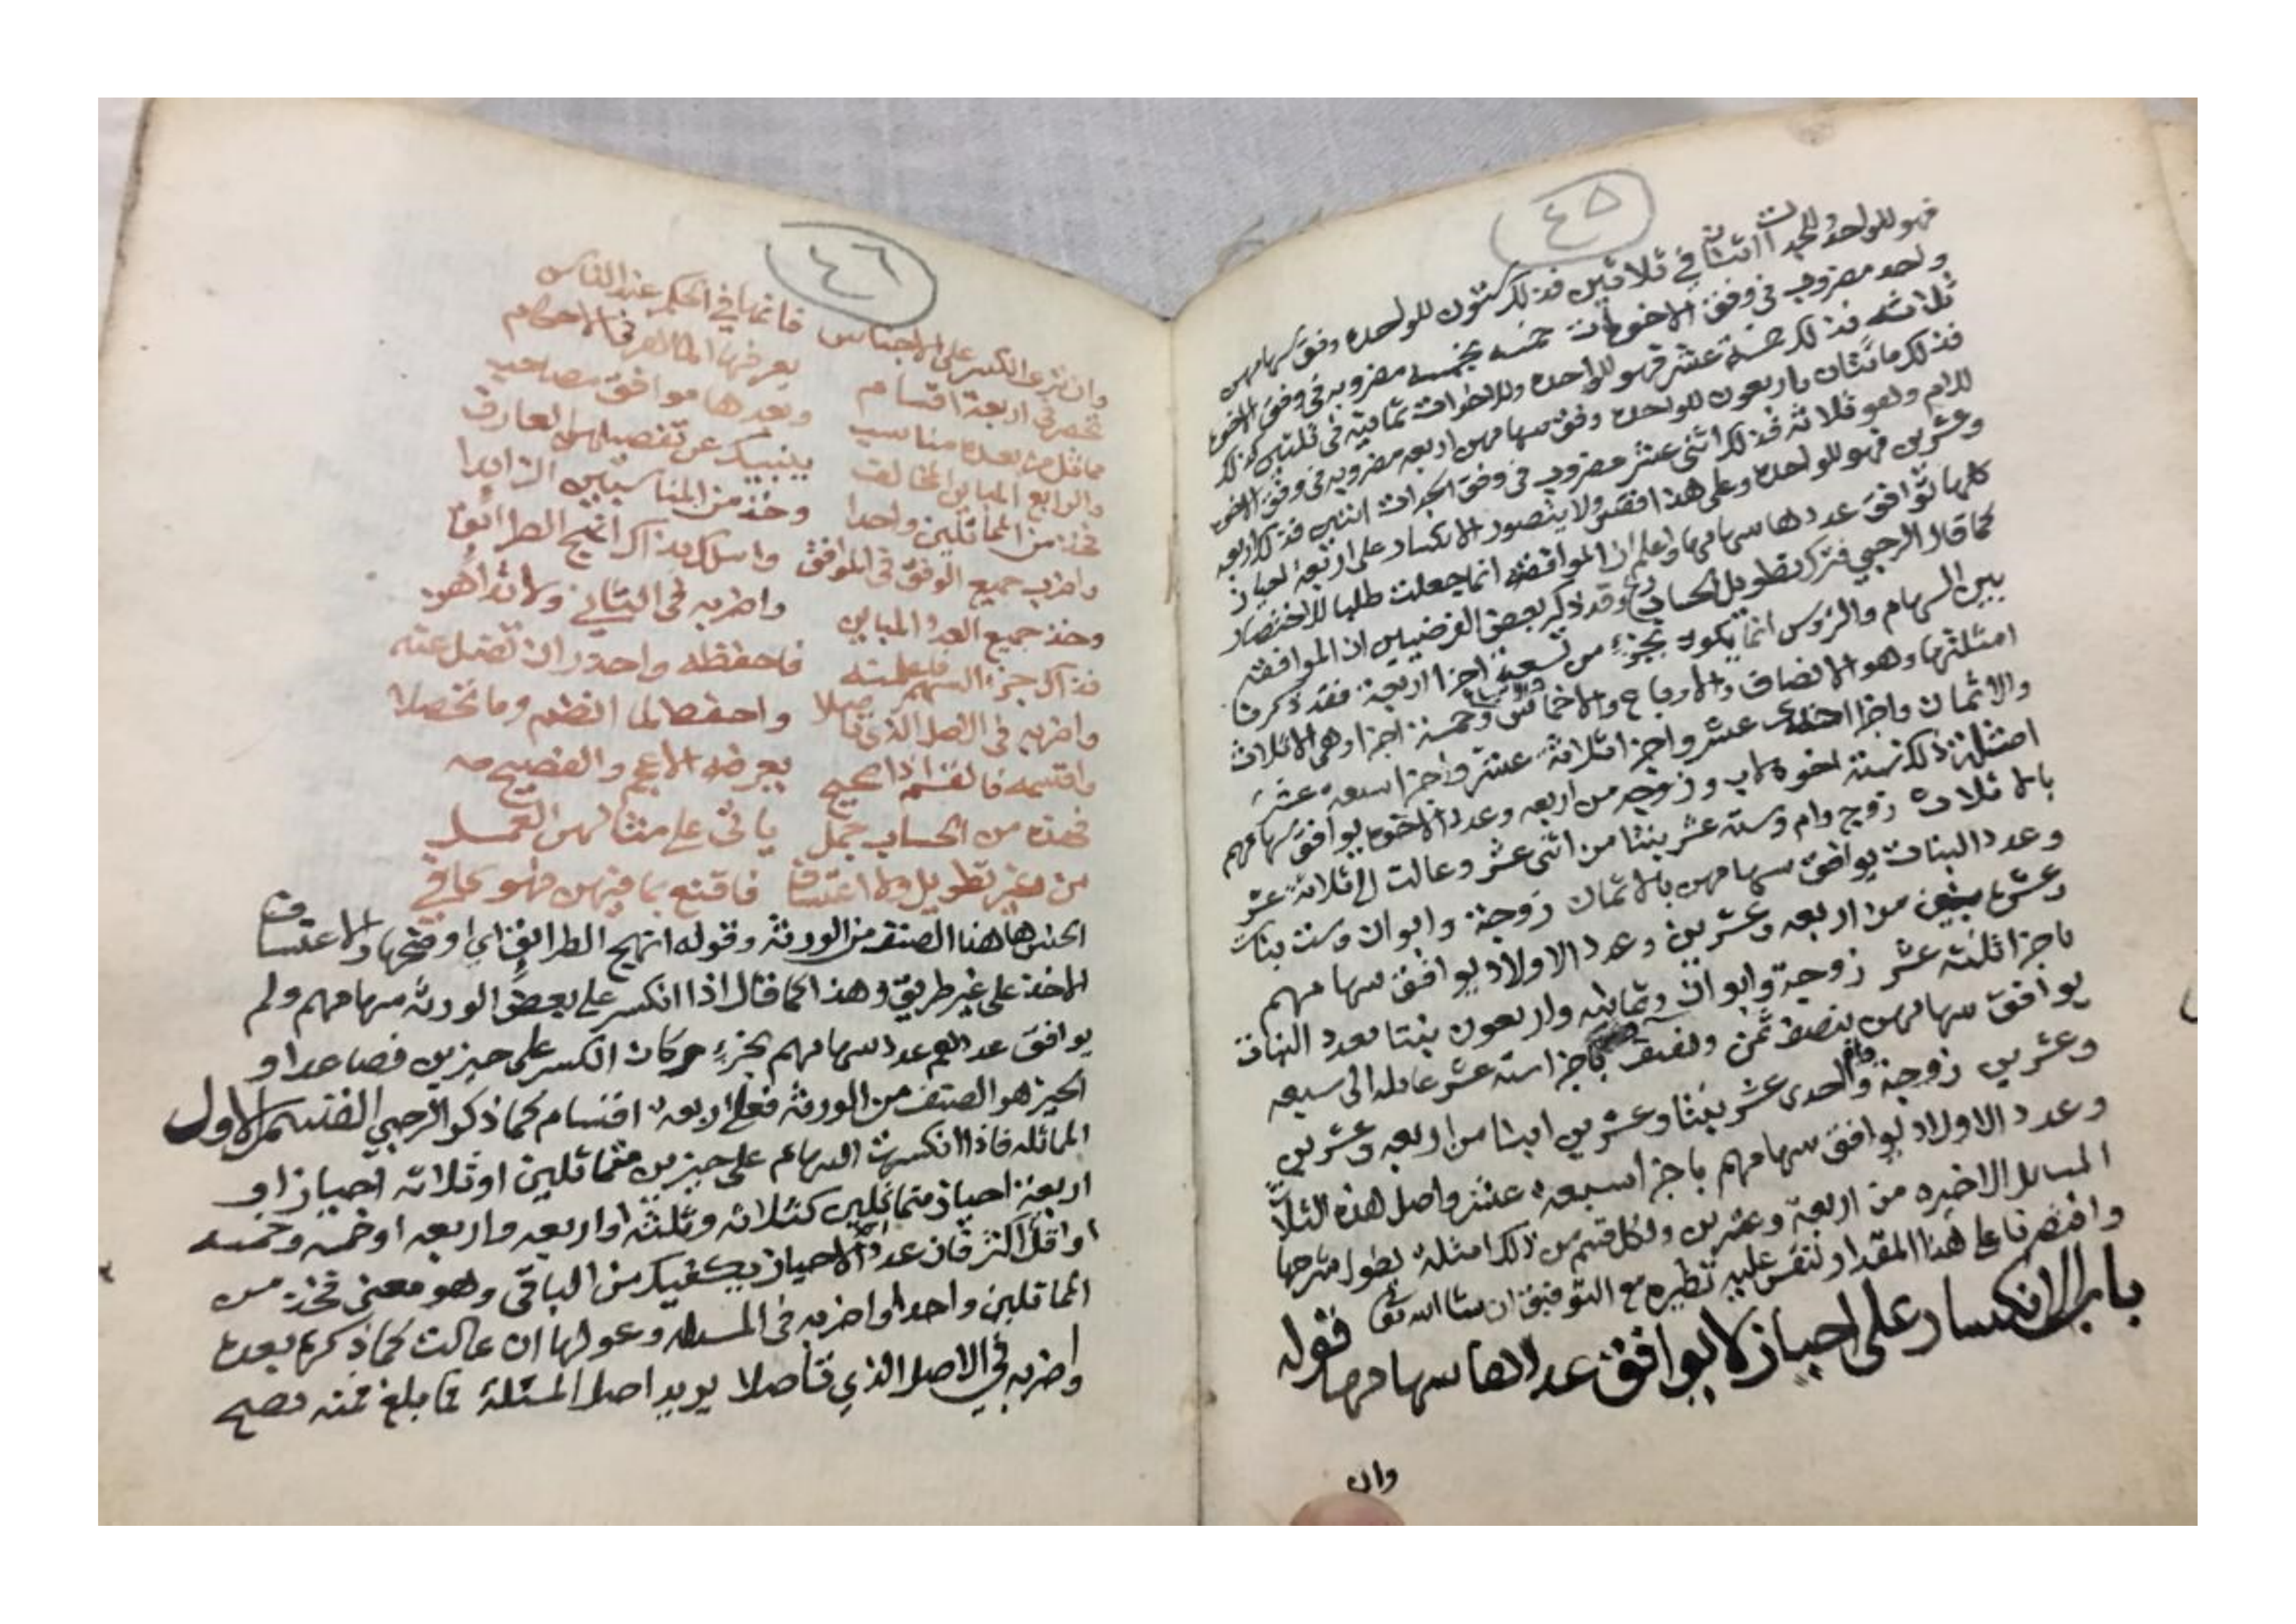 ٤٥
فهو للواحده وللجدات اثنتان في ثلاثين فذلك ستون للواحده وفق سهامهن
واحد مضروب في وفق الاخوات خمسه بخمسه مضروبه في وفق الاخوه
ثلاثه فذلك خمسة عشر فهو للواحده وللاخوات ثمانيه في ثلثين كذلك
فذلك مائتان واربعون للواحده وفق سهامهن اربعه مضروبه في وفق الاخوه
للام وهو ثلاثه فذلك اثني عشر مضروب في وفق الجدات اثنتين فذلك اربعه
وعشرين فهو للواحده وعلى هذا فقس ولا يتصور الانكسار على اربعة احياز
كلها توافق عددها سهامها واعلم ان الموافقه انما جعلت طلبا للاختصار
كما قال الرحبي فترك تطويل الحساب ربح وقد ذكر بعض الفرضيين ان الموافقه
بين السهام والرؤس انما يكون بجزء من تسعة اجزا اربعة فقد ذكرنا
امثلتها وهو الانصاف والارباع والاخماس والاسباع وخمسة اجزا وهي الاثلاث
والاثمان واجزا احدى عشر واجزا ثلاثة عشر واجزا سبعه عشر
امثلة ذلك ستة اخوه لاب وزوجه من اربعه وعدد الاخوه يوافق سهامهم
بالاثلاث زوج وام وستة عشر بنتا من اثنى عشر وعالت الى ثلاثة عشر
وعدد البنات يوافق سهامهن بالاثمان زوجة وابوان وست بنات
وعشره بنين من اربعه وعشرين وعدد الاولاد يوافق سهامهم
باجزا ثلثة عشر زوجة وابوان وثمانيه واربعون بنتا فعدد البنات
يوافق سهامهن بنصف ثمن ونصف باجزا سته عشر عايله الى سبعه
وعشرين زوجة وام واحدى عشر بنتا وعشرين ابنا من اربعه وعشرين
وعدد الاولاد يوافق سهامهم باجزا سبعه عشر واصل هذه الثلاث
المسايل الاخيره من اربعة وعشرين ولكل قسم من ذلك امثلة يطول شرحها
واقتصرنا على هذا المقدار لنقس عليه نظيره مع التوفيق ان شا الله تعالى
باب الانكسار على احياز لا يوافق عددها سهامها قوله
وان
٤٦
وان ترى الكسر على الاجناس فانها في الحكم عند الناس
تحصر في اربعة اقسام يعرفها الماهر في الاحكام
مماثل من بعده مناسب وبعدها موافق مصاحب
والرابع المباين المخالف ينبيك عن تفصيلهن العارف
فخذ من المماثلين واحدا وخذ من المناسبين الزايدا
واضرب جميع الوفق في الموافق واسلك بذاك انهج الطرائق
وخذ جميع العدد المباين واضربه في الثاني ولا تداهن
فذاك جزء السهم فاعلمنه فاحفظه واحذر ان تضل عنه
واضربه في الاصل الذي تاصلا واحفظ لما انضم وما تحصلا
واقسمه فالقسم اذا صحيح يعرفه الاعجم والفصيح
فهذه من الحساب جمل ياتي على مثالهن العمل
من غير تطويل ولا اعتساف فاقنع بما فيهن فهو كافي
الجنس هاهنا الصنف من الورثة وقوله انهج الطرائق اي اوضحها والاعتساف
الاخذ على غير طريق وهذا كما قال اذا انكسر على بعض الورثه سهامهم ولم
يوافق عددهم عدد سهامهم بجزء وكان الكسر على حيزين فصاعدا و
الحيز هو الصنف من الورثه فعلى اربعه اقسام كما ذكر الرحبي القسم الاول
المماثله فاذا انكسرت السهام على حيزين متماثلين او ثلاثه احياز او
اربعة احياز متماثلين كثلاثه وثلثه او اربعه واربعه او خمسه وخمسه
او اقل اكثر فان عدد احد الاحياز يكفيك من الباقي وهو معنى فخذ من
المماثلين واحدا واضربه في المسئله وعولها ان عالت كما ذكره بعده
واضربه في الاصل الذي تأصلا يريد اصل المسئلة فما بلغ فمنه تصح